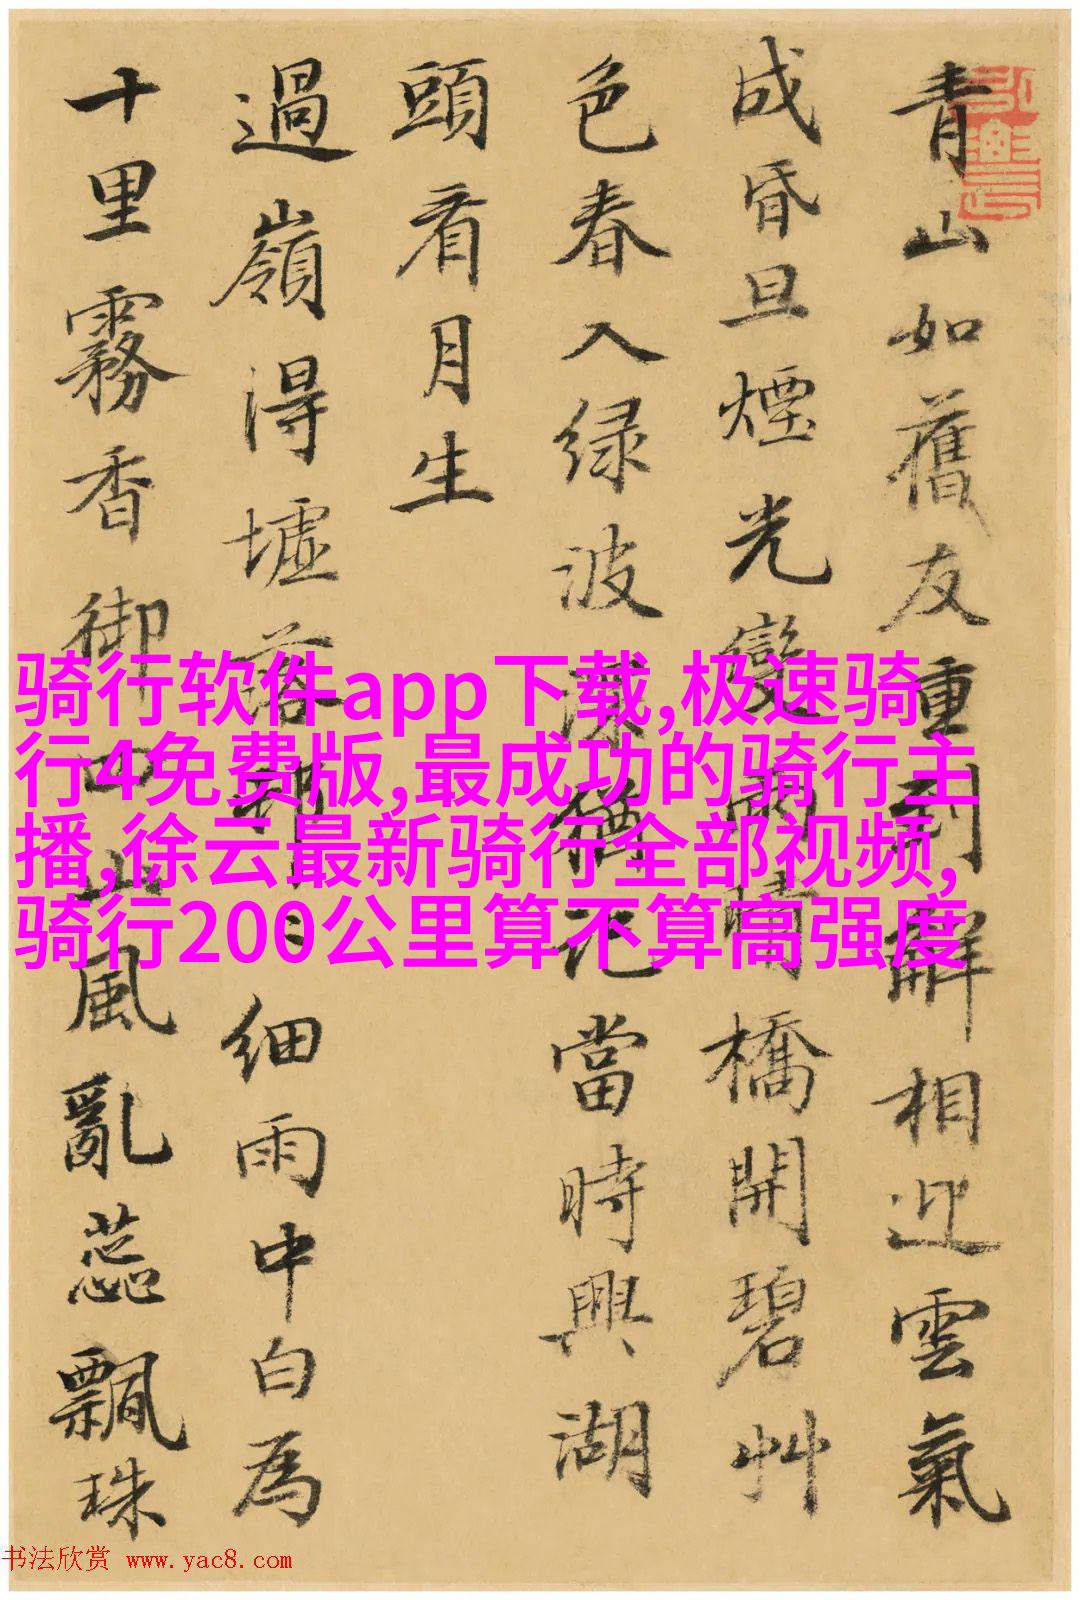 青山如舊友重到解相迎雲氣
成昏旦煙光變雨晴橋開碧艸
色春入绿波猶記當時興湖
頭看月生
過嶺得墟落細雨中白為
十里霧香御四山風亂蕊飄珠
骑行软件app下载,极速骑
行4免费版,最成功的骑行主
播,徐云最新骑行全部视频,
骑行200公里算不算高强度
书法欣赏 www.yac8.com